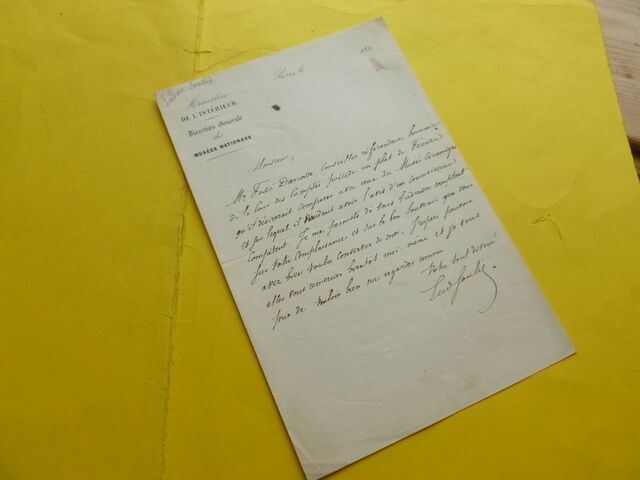 Paris le 184
Ministère
DE L'INTÉRIEUR
Direction Générale
des
MUSÉES NATIONAUX
Monsieur,
Mr Frédc Danrose, conseiller référendaire honoraire
de la Cour des Comptes possède un plat de Faenza
qu'il désirerait comparer avec ceux du Musée Céramique
et sur lequel il voudrait avoir l'avis d'un connaisseur
compétent. Je me permets de vous l'adresser comptant
sur votre complaisance et sur le bon souvenir que vous
avez bien voulu conserver de moi. J'espère pouvoir
aller vous remercier bientôt moi-même et je vous
prie de vouloir bien me regarder comme
Votre tout dévoué
Eud Soulié.